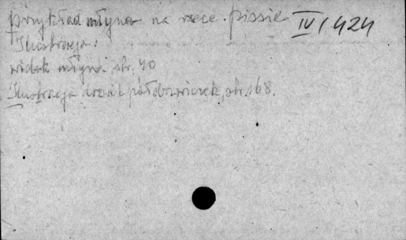 przykład młyna na rzece pissie IV/424
Ilustracja:
widok młyna str. 40
Ilustracja str. 168.